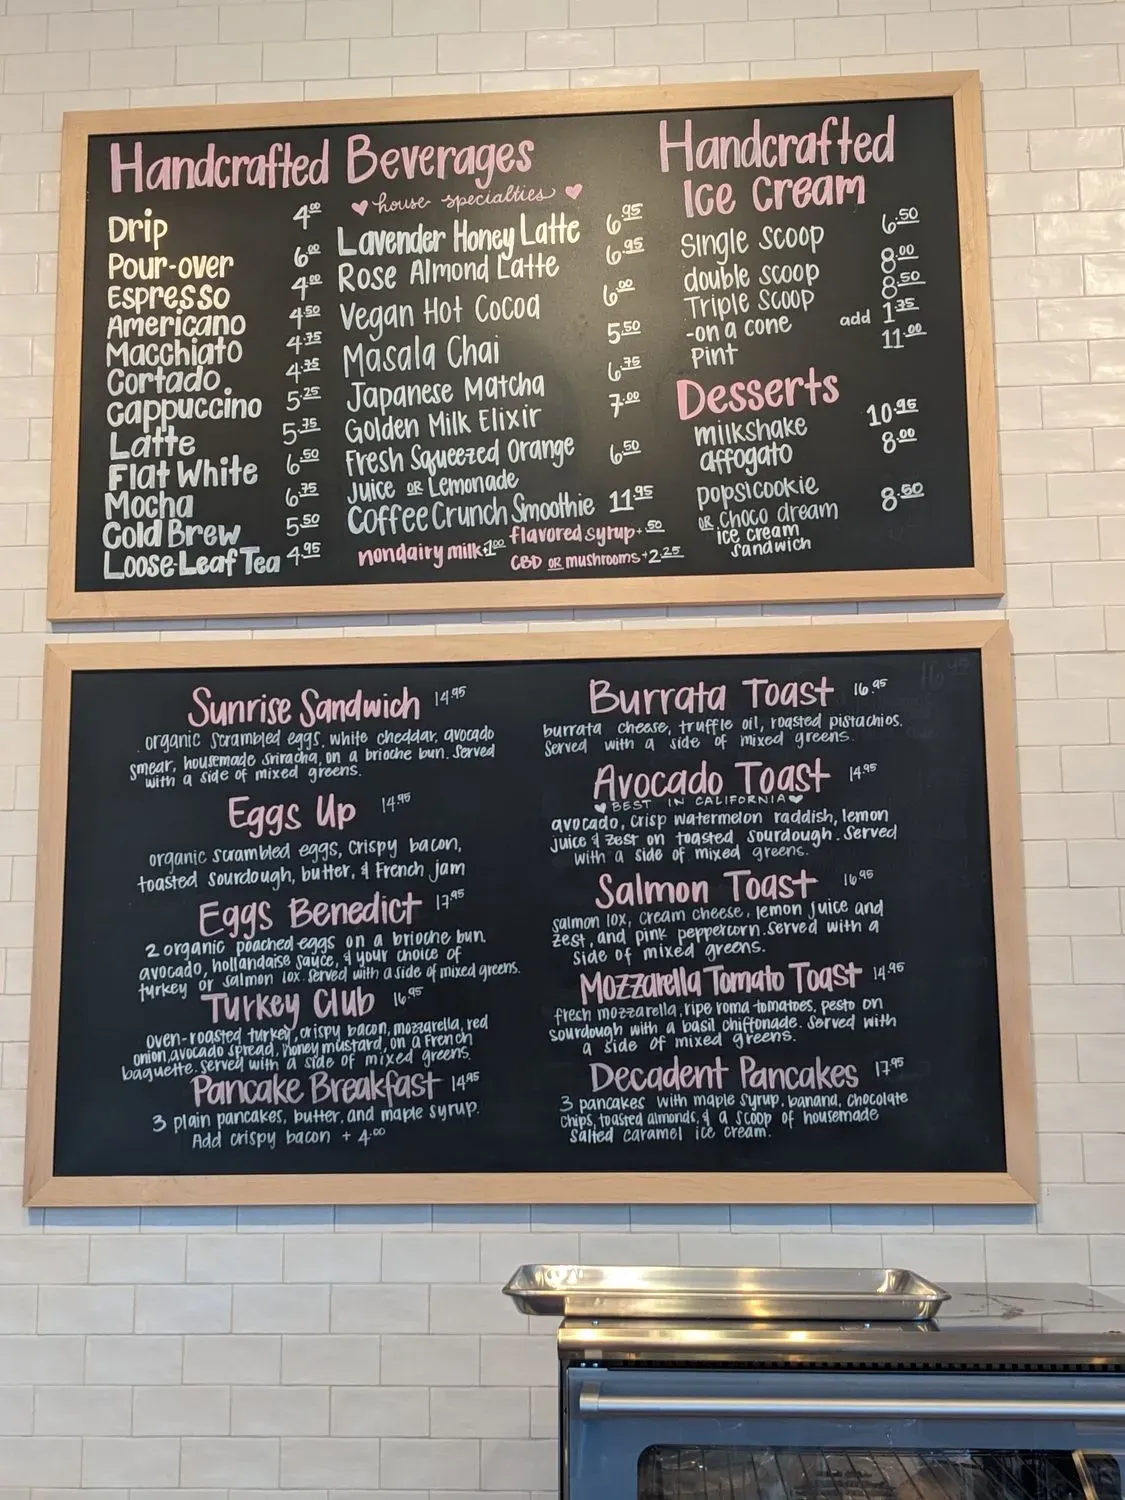 Handcrafted Beverages
Drip 4.00
Pour-over 6.00
Espresso 4.00
Americano 4.50
Macchiato 4.75
Cortado 4.75
Cappuccino 5.25
Latte 5.75
Flat White 6.50
Mocha 6.75
Cold Brew 5.50
Loose-Leaf Tea 4.95
house specialties
Lavender Honey Latte 6.95
Rose Almond Latte 6.95
Vegan Hot Cocoa 6.00
Masala Chai 5.50
Japanese Matcha 6.75
Golden Milk Elixir 7.00
Fresh Squeezed Orange
Juice or Lemonade 6.50
Coffee Crunch Smoothie 11.95
nondairy milk+1.00 flavored syrup+.50
CBD or mushrooms+2.25
Handcrafted
Ice Cream
Single Scoop 6.50
double scoop 8.00
Triple Scoop 8.50
-on a cone add 1.75
Pint 11.00
Desserts
milkshake 10.95
affogato 8.00
popsicookie
or choco dream 8.50
ice cream
sandwich
Sunrise Sandwich 14.95
organic scrambled eggs, white cheddar, avocado
smear, housemade sriracha, on a brioche bun. Served
with a side of mixed greens.
Eggs Up 14.95
organic scrambled eggs, crispy bacon,
toasted sourdough, butter, & French jam
Eggs Benedict 17.95
2 organic poached eggs on a brioche bun,
avocado, hollandaise sauce, & your choice of
turkey or salmon lox. Served with a side of mixed greens.
Turkey Club 16.95
oven-roasted turkey, crispy bacon, mozzarella, red
onion, avocado spread, honey mustard, on a French
baguette. Served with a side of mixed greens.
Pancake Breakfast 14.95
3 plain pancakes, butter, and maple syrup.
Add crispy bacon + 4.00
Burrata Toast 16.95
burrata cheese, truffle oil, roasted pistachios.
Served with a side of mixed greens.
Avocado Toast 14.95
BEST IN CALIFORNIA
avocado, crisp watermelon raddish, lemon
juice & zest on toasted sourdough. Served
with a side of mixed greens.
Salmon Toast 16.95
salmon lox, cream cheese, lemon juice and
zest, and pink peppercorn. Served with a
side of mixed greens.
Mozzarella Tomato Toast 14.95
fresh mozzarella, ripe roma tomatoes, pesto on
sourdough with a basil chiffonade. Served with
a side of mixed greens.
Decadent Pancakes 17.95
3 pancakes with maple syrup, banana, chocolate
chips, toasted almonds, & a scoop of housemade
salted caramel ice cream.